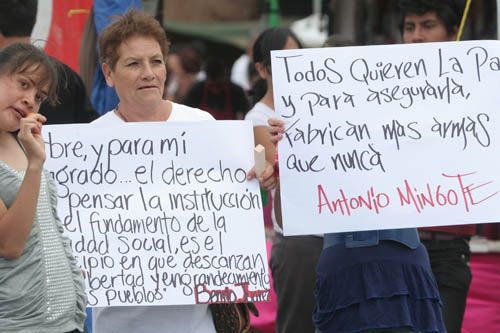 bre, y para mí
grado... el derecho
pensar la institución
el fundamento de la
dad social, es el
ipio en que descanzan
ibertad y engrandecimiento
s pueblos
Benito
Todos Quieren La Pa
y para asegurarla,
fabrican mas armas
que nunca
Antonio MINGOTE